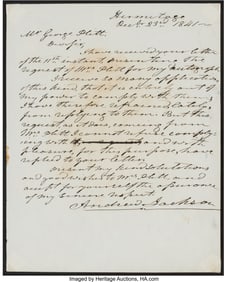 Hermitage
Decbr 23rd 1841—
Mr George Plitt.
Dear Sir,
I have received your letter
of the 11th instant presenting the
request of Mrs Plitt for my autograph.
I receive so many applications
of this kind, that it is entirely out of
my power to comply with them,
I have therefore refrained lately
from replying to them. But this
request as it does coming from
Mrs Plitt I cannot refuse comply-
ing with and with
pleasure for this purpose, have
replied to your letter,
present my kind salutations
and good wishes to Mrs Plitt and
accept for yourself the assurance
of my sincere respect.
Andrew Jackson
Imaged by Heritage Auctions, HA.com